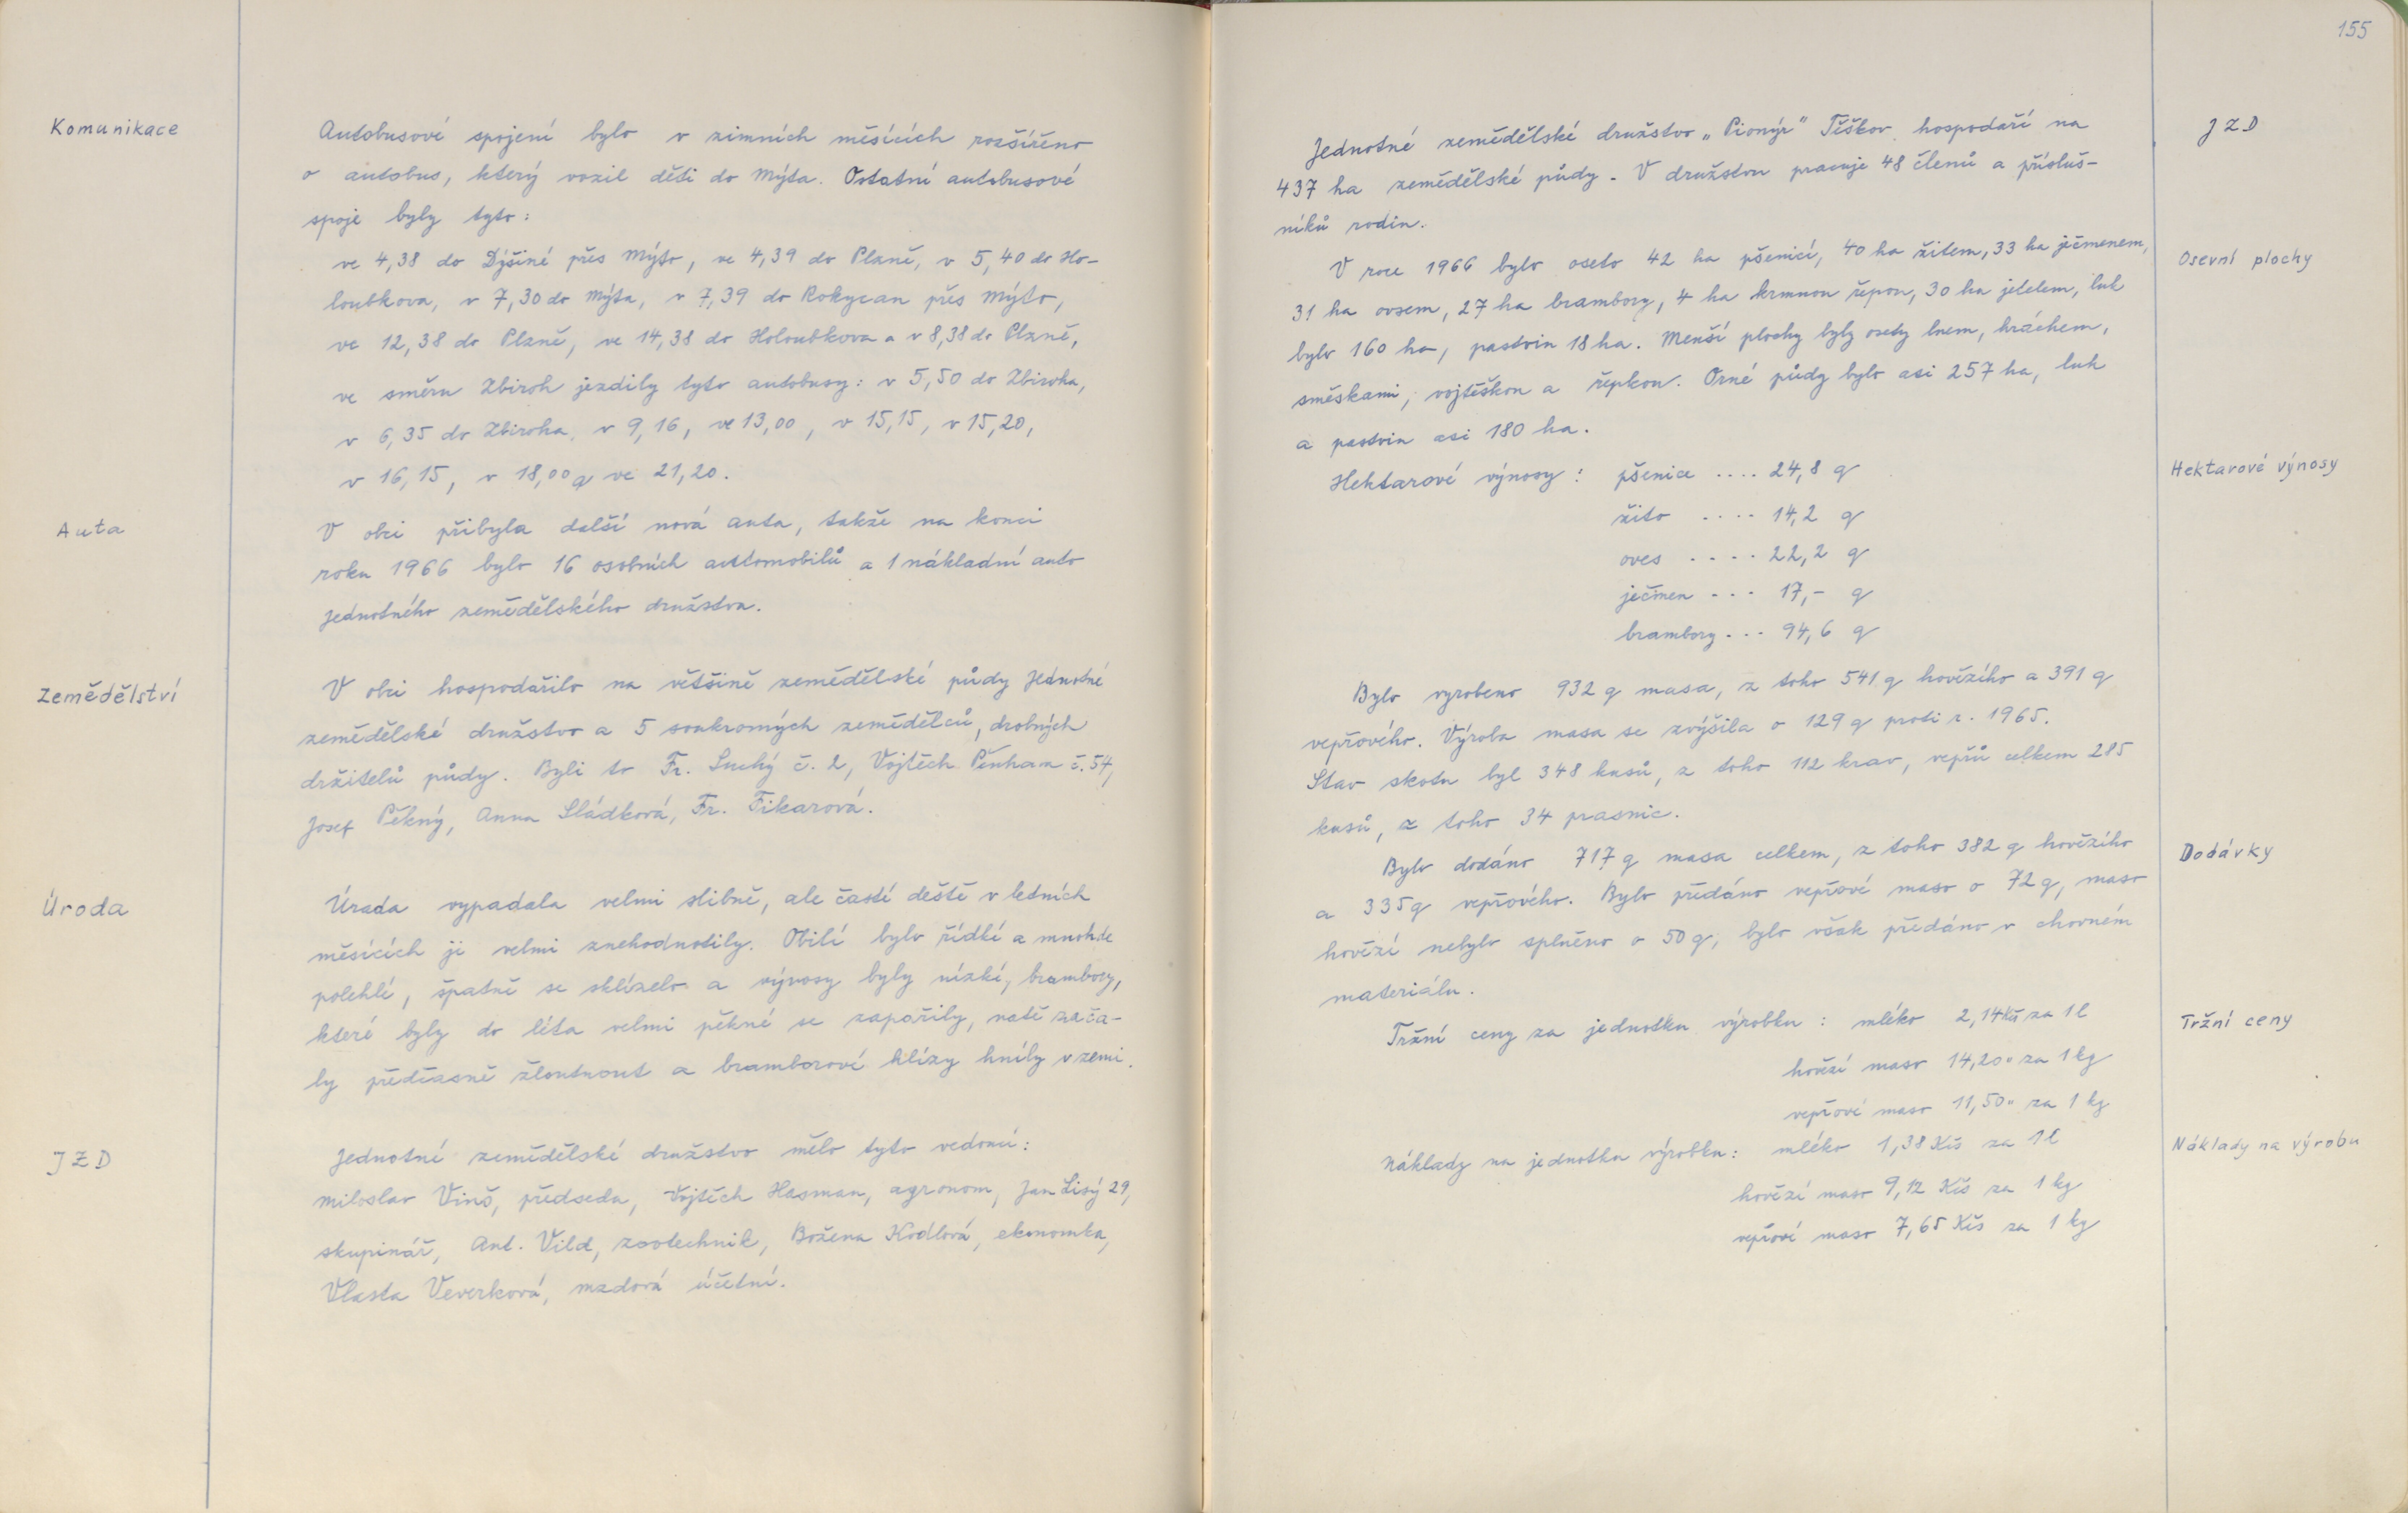 Komunikace
Autobusové spojení bylo v zimních měsících rozšířeno
o autobus, který vozil děti do Mýta. Ostatní autobusové
spoje byly tyto:
ve 4,38 do Dýšiné přes Mýto, ve 4,39 do Plzně, v 5,40 do Ho-
loubkova, v 7,30 do Mýta, v 7,39 do Rokycan přes Mýto,
ve 12,38 do Plzně, ve 14,38 do Holoubkova a v 8,38 do Plzně,
ve směru Zbiroh jezdily tyto autobusy: v 5,50 do Zbiroha,
v 6,35 do Zbiroha, v 9,16, ve 13,00, v 15,15, v 15,20,
v 16,15, v 18,00 a ve 21,20.
Auta
V obci přibyla další nová auta, takže na konci
roku 1966 bylo 16 osobních automobilů a 1 nákladní auto
Jednotného zemědělského družstva.
Zemědělství
V obci hospodařilo na většině zemědělské půdy Jednotné
zemědělské družstvo a 5 soukromých zemědělců, drobných
držitelů půdy. Byli to Fr. Suchý č. 2, Vojtěch č. 54,
Josef Pěkný, Anna Sládková, Fr. Fikarová.
Úroda
Úrada vypadala velmi slibně, ale časté deště v letních
měsících ji velmi znehodnotily. Obilí bylo řídké a mnohde
polehlé, špatně se sklízelo a výnosy byly nízké, brambory,
které byly do léta velmi pěkné se zapařily, natě zača-
ly předčasně žloutnout a bramborové hlízy hnily v zemi.
JZD
Jednotné zemědělské družstvo mělo tyto vedoucí:
Miloslav Vinš, předseda, Vojtěch Hasman, agronom, Jan Lisý 29,
skupinář, Ant. Vild, zootechnik, Božena Kodlová, ekonomka,
Vlasta Veverková, mzdová účetní.
155
JZD
Jednotné zemědělské družstvo „Pionýr" Těškov hospodaří na
437 ha zemědělské půdy. V družstvu pracuje 48 členů a přísluš-
níků rodin.
Osevní plochy
V roce 1966 bylo oseto 42 ha pšenicí, 40 ha žitem, 33 ha ječmenem,
31 ha ovsem, 27 ha brambory, 4 ha krmnou řepou, 30 ha jetelem, luk
bylo 160 ha, pastvin 18 ha. Menší plochy byly osety lnem, hráchem,
směskami, vojtěškou a řepkou. Orné půdy bylo asi 257 ha, luk
a pastvin asi 180 ha.
Hektarové výnosy
Hektarové výnosy: pšenice .... 24,8 q
žito .... 14,2 q
oves .... 22,2 q
ječmen ... 17,- q
brambory ... 94,6 q
Bylo vyrobeno 932 q masa, z toho 541 q hovězího a 391 q
vepřového. Výroba masa se zvýšila o 129 q proti r. 1965.
Stav skotu byl 348 kusů, z toho 112 krav, vepřů celkem 285
kusů, z toho 34 prasnic.
Dodávky
Bylo dodáno 717 q masa celkem, z toho 382 q hovězího
a 335 q vepřového. Bylo předáno vepřové maso o 72 q, maso
hovězí nebylo splněno o 50 q, bylo však předáno v chovném
materiálu.
Tržní ceny
Tržní ceny za jednotku výrobku: mléko 2,14 Kčs za 1 l
hovězí maso 14,20 " za 1 kg
vepřové maso 11,50 " za 1 kg
Náklady na výrobu
Náklady na jednotku výrobku: mléko 1,38 Kčs za 1 l
hovězí maso 9,12 Kčs za 1 kg
vepřové maso 7,65 Kčs za 1 kg